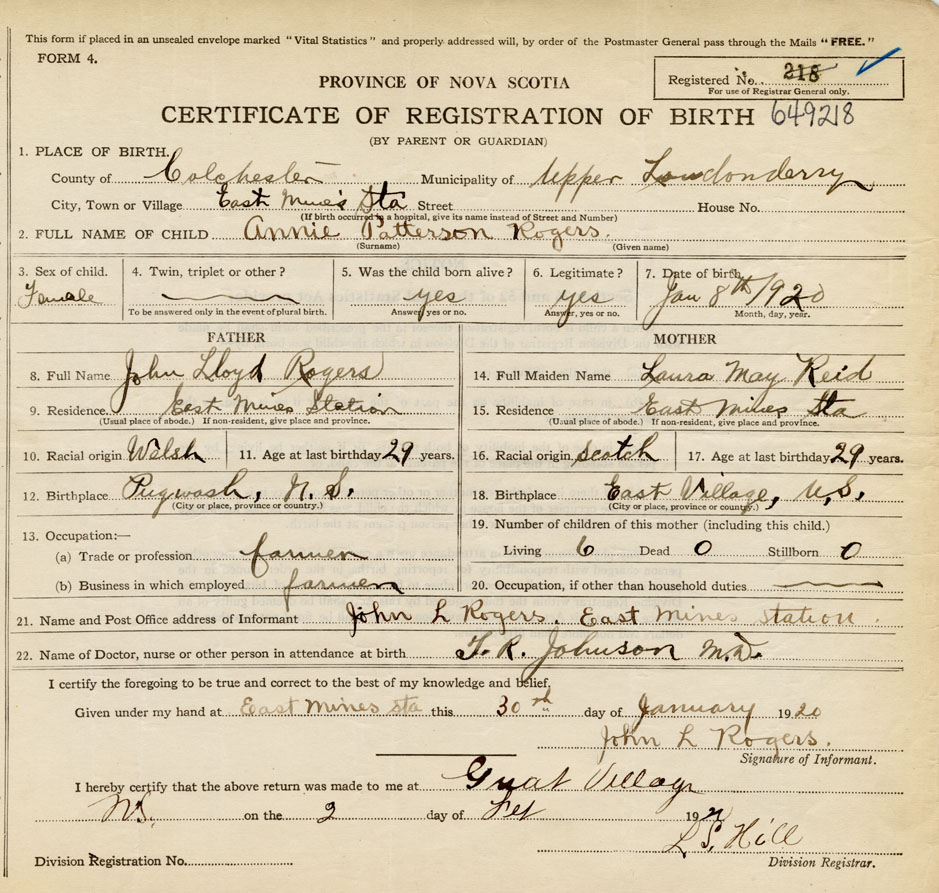 This form if placed in an unsealed envelope marked "Vital Statistics" and properly addressed will, by order of the Postmaster General pass through the Mails "FREE."
FORM 4.
Registered No. 218
For use of Registrar General only.
PROVINCE OF NOVA SCOTIA
CERTIFICATE OF REGISTRATION OF BIRTH 649218
(BY PARENT OR GUARDIAN)
1. PLACE OF BIRTH.
County of Colchester Municipality of Upper Londonderry
City, Town or Village East Mines Sta Street House No.
(If birth occurred in a hospital, give its name instead of Street and Number)
2. FULL NAME OF CHILD Annie Patterson Rogers.
(Surname) (Given name)
3. Sex of child. 4. Twin, triplet or other? 5. Was the child born alive? 6. Legitimate? 7. Date of birth
Female yes yes Jan 8th/1920
To be answered only in the event of plural birth. Answer, yes or no. Answer, yes or no. Month, day, year.
FATHER MOTHER
8. Full Name John Lloyd Rogers 14. Full Maiden Name Laura May Reid
9. Residence. East Mines Station 15. Residence East Mines Sta
(Usual place of abode.) If non-resident, give place and province. (Usual place of abode.) If non-resident, give place and province.
10. Racial origin Welsh 11. Age at last birthday 29 years. 16. Racial origin Scotch 17. Age at last birthday 29 years.
12. Birthplace Pugwash, N.S. 18. Birthplace East Village, N.S.
(City or place, province or country.) (City or place, province or country.)
19. Number of children of this mother (including this child.)
13. Occupation:—
(a) Trade or profession farmer Living 6 Dead 0 Stillborn 0
(b) Business in which employed farmer 20. Occupation, if other than household duties
21. Name and Post Office address of Informant John L Rogers. East Mines station.
22. Name of Doctor, nurse or other person in attendance at birth T. R. Johnson M.D.
I certify the foregoing to be true and correct to the best of my knowledge and belief,
Given under my hand at East Mines sta this 30th day of January 1920
John L Rogers.
Signature of Informant.
I hereby certify that the above return was made to me at Great Village
N.S. on the 2 day of Feb 19
L. S. Hill
Division Registration No. Division Registrar.